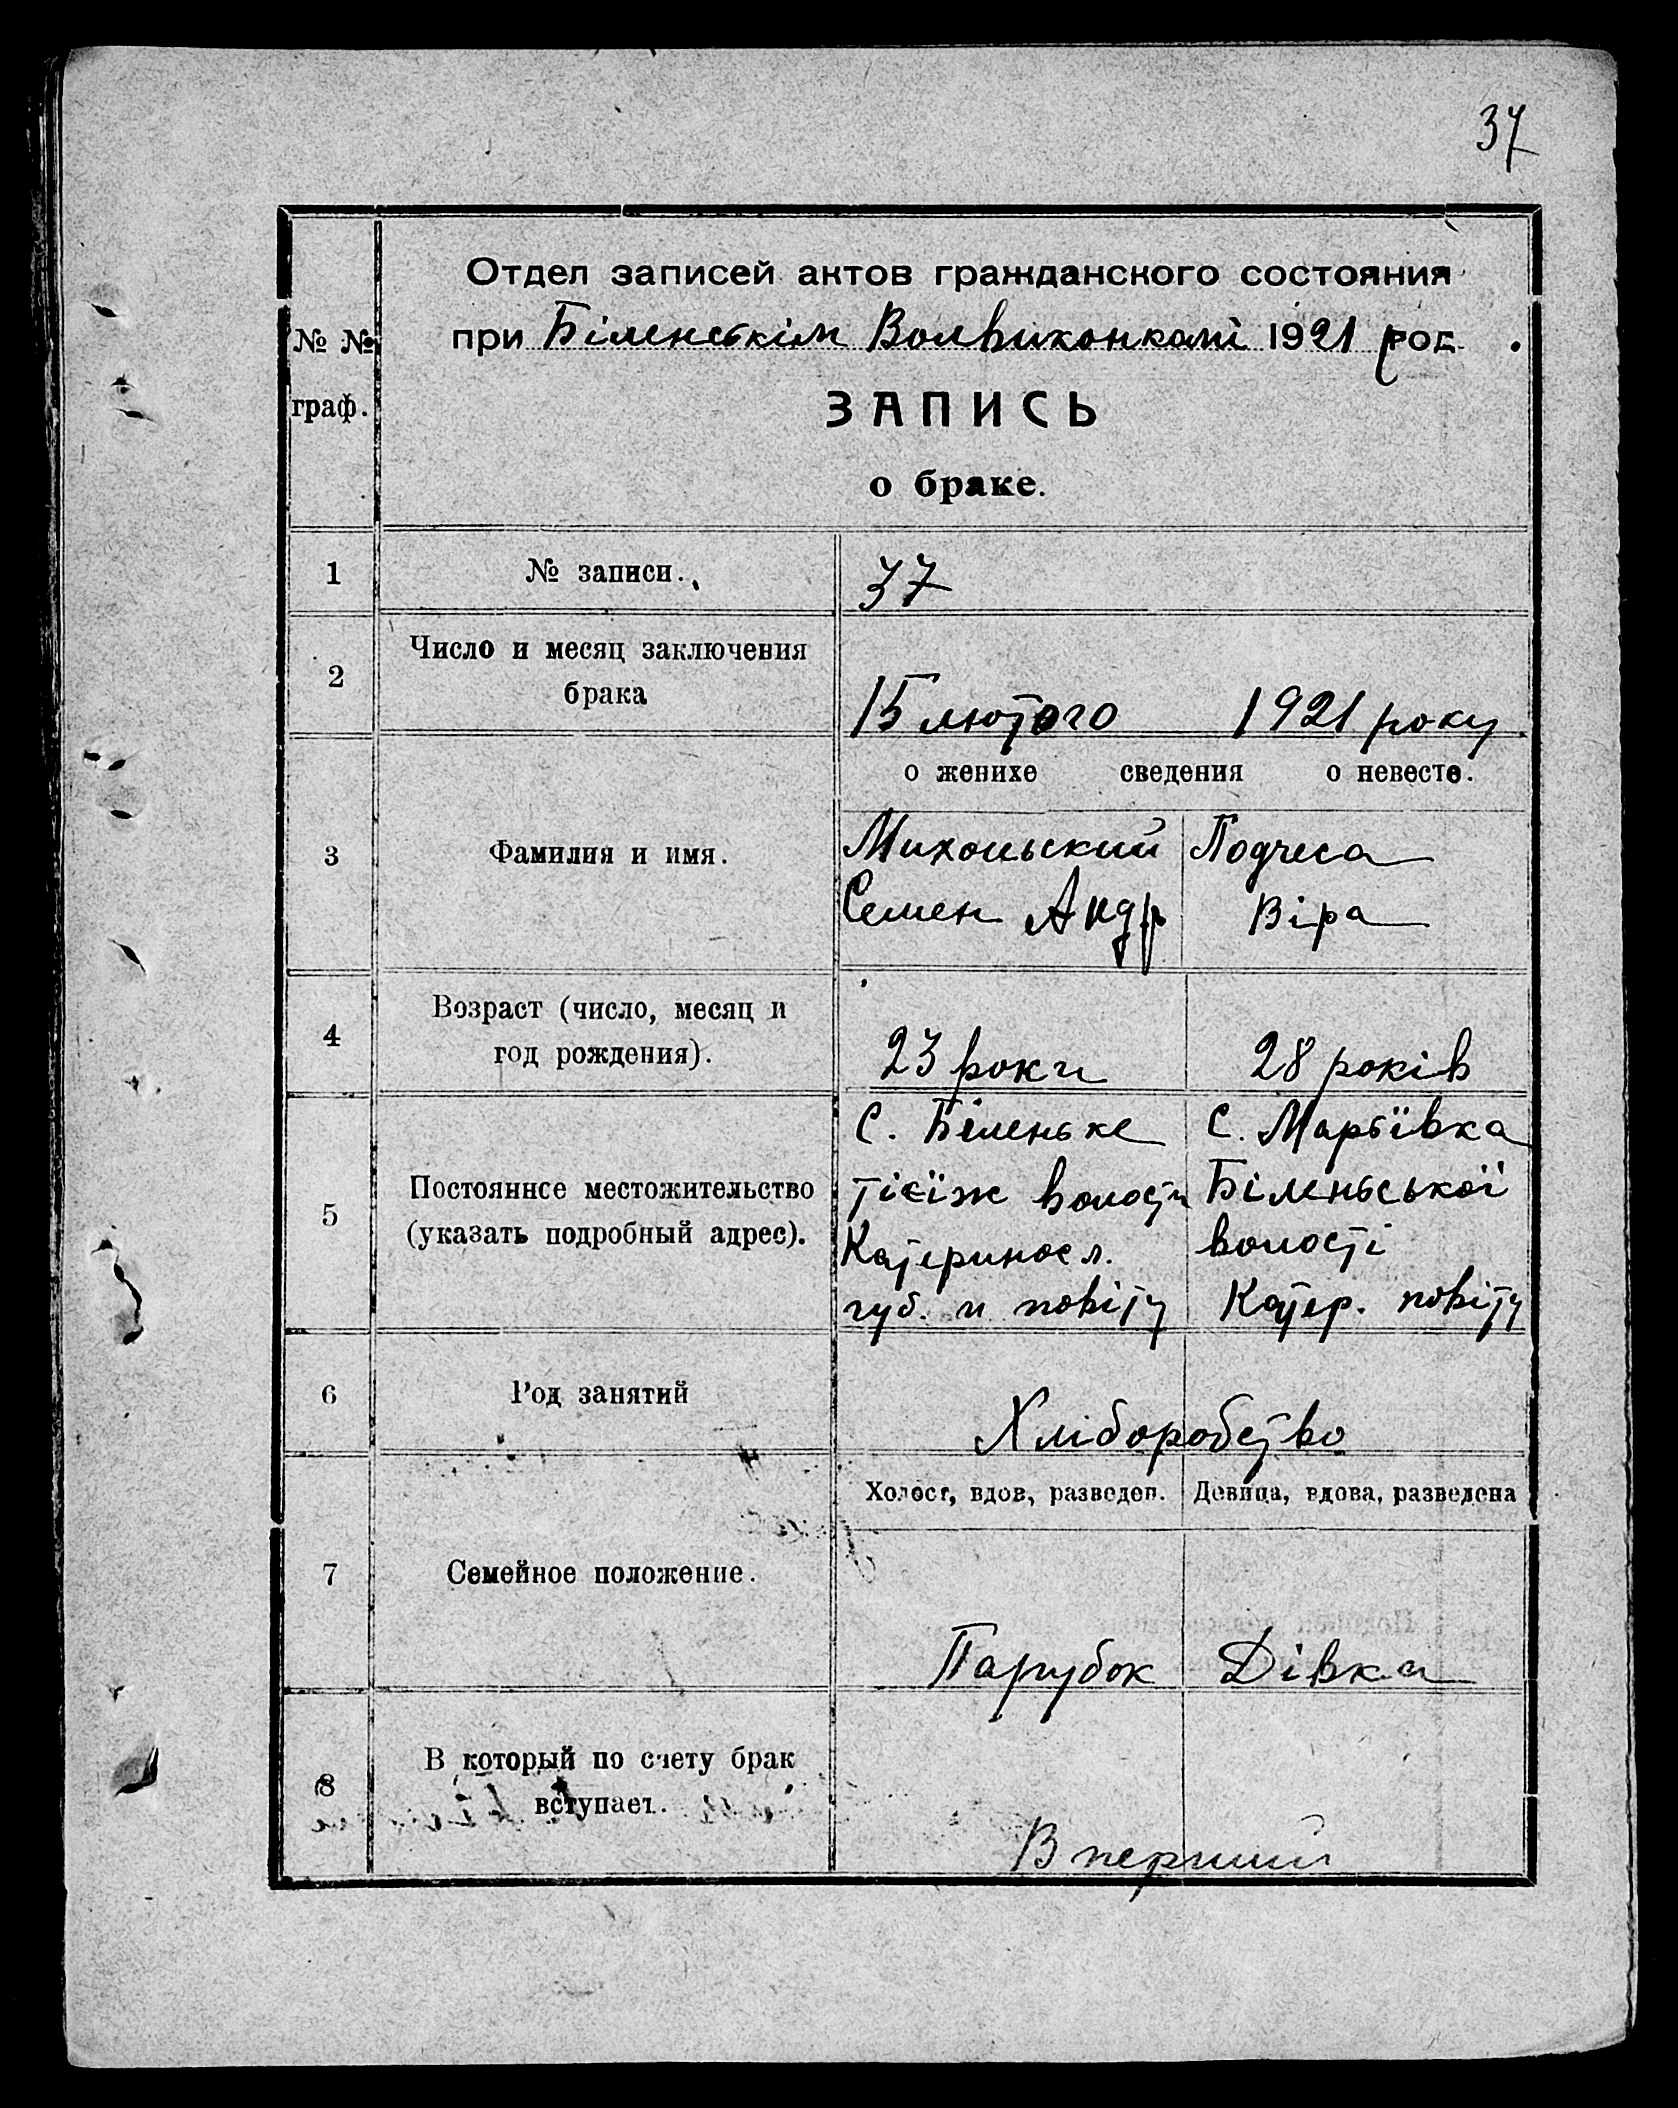 37
Отдел записей актов гражданского состояния
при Біленськім Волвиконкомі 1921 род.
№ №
граф.
ЗАПИСЬ
о браке.
1
№ записи.
37
2
Число и месяц заключения
брака
15 лютого 1921 року
о женихе сведения о невесте.
3
Фамилия и имя.
Михольский Подчеса
Семен Андр Віра
4
Возраст (число, месяц и
год рождения).
23 роки 28 років
5
Постоянное местожительство
(указать подробный адрес).
С. Біленьке С. Марьівка
тієїж волости Біленьської
Катериносл. волості
губ. и повіту Катер. повіту
6
Род занятий
Хліборобство
7
Семейное положение.
Холост, вдов, разведен. Девица, вдова, разведена
Парубок Дівка
8
В который по счету брак
вступает.
В перший